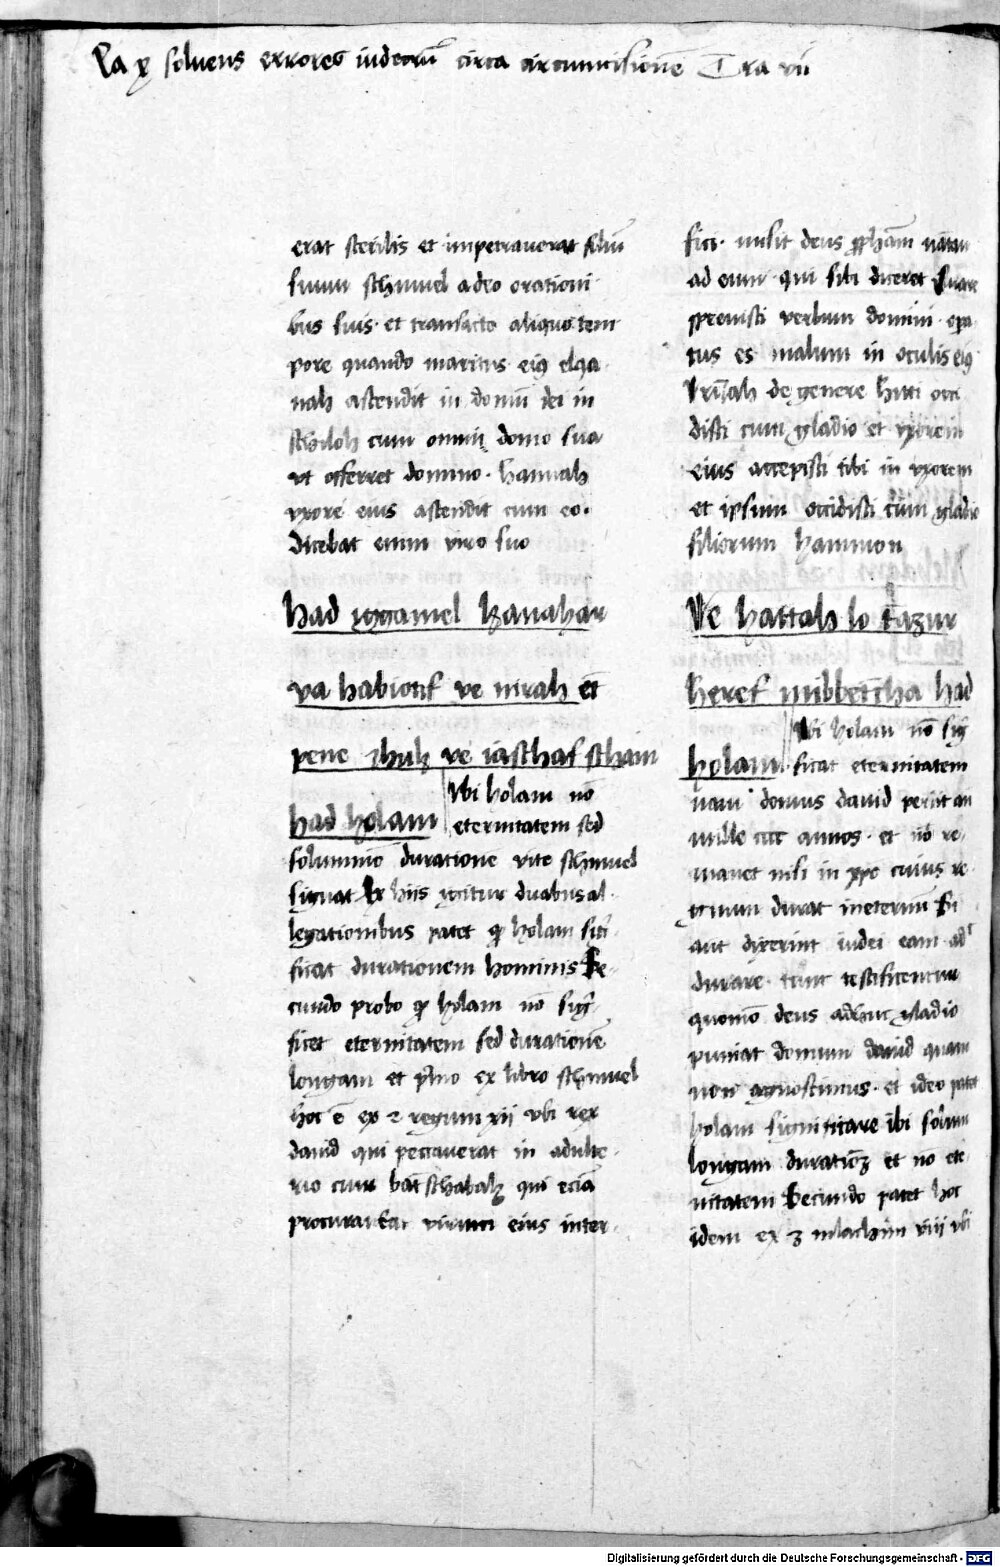 Ca x soluens errores iudeorũ circa circumcisionẽ Tra vii
erat sterilis et impetrauerat filiũ
suum schmuel a deo orationi
bus suis · et transacto aliquo tem
pore quando maritus eiꝫ elqa
nah ascendit in domũ dei in
schiloh cum omni domo sua
vt offerret domino · hannah
vxore eius ascendit cum eo ·
dicebat enim viro suo
had iggamel hanahar
va habiotif ve nirah et
pene zhuh ve iaschaf scham
had holam
Vbi holam nõ
eternitatem sed
solummõ durationẽ vite schmuel
signat Ex hiis igitur duabus al
legationibus patet ꝙ holam sig̃
ficat durationem hominis Se
cundo probo ꝙ holam nõ sig̃
ficet eternitatem sed durationẽ
longam et p̃mo ex libro schmuel
hoc ẽ ex 2 regum xii vbi rex
dauid qui peccauerat in adulte
rio cum bat̃schabah qui eciã
procurarat virum eius inter
fici · misit deus ꝓphetã natan
ad eum · qui sibi diceret Quare
spreuisti verbum domini · opa
tus es malum in oculis eiꝫ
Vrijah de genere hitti occi
disti cum gladio et vxorem
eius accepisti tibi in vxorem
et ipsum occidisti cum gladio
filiorum hammon
Ve hattah lo tazur
heref mibbet̃cha had
holam
Vbi holam nõ sig̃
ficat eternitatem
nam domus dauid periit an
mille cccc annos · et nõ re
manet nisi in xp̃o cuius re
gnum durat ineternũ Si
aut dixerint iudei eam ad
durare · tunc testificentur
quomõ deus adhuc gladio
puniat domum dauid quam
non agnoscimus · et ideo patet
holam significare ibi solum
longam durationẽ et nõ ete
nitatem Secundo patet hoc
idem ex 3 mlachim viii vbi